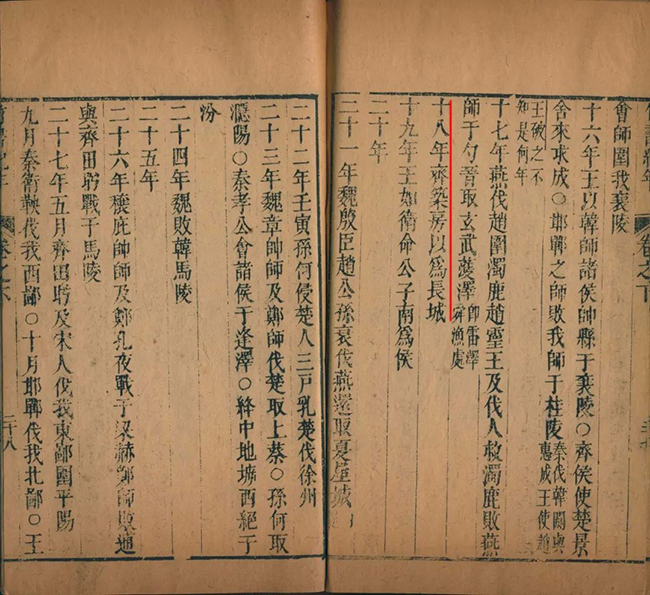 會師圍我襄陵
十六年王以韓師諸侯師縣于襄陵○齊侯使楚景
舍來求成○邯鄲之師敗我師于桂陵秦伐韓閼與惠成王使趙
王破之不知是何年
十七年燕伐趙圍濁鹿趙靈王及代人救濁鹿敗燕
師于勺晉取玄武濩澤卽雷澤舜漁處
十八年齊築房以爲長城
十九年王如衛命公子南爲侯
二十年
二十一年魏殷臣趙公孫裒伐燕還取夏屋城
二十二年壬寅孫何侵楚入三戶孔楚伐徐州
二十三年魏章帥師及鄭師伐楚取上蔡○孫何取
㶏陽○秦孝公會諸侯于逢澤○絳中地㙷西絕于
汾
二十四年魏敗韓馬陵
二十五年
二十六年穰疵帥師及鄭孔夜戰于梁赫鄭師敗逋
與齊田盼戰于馬陵
二十七年五月齊田盼及宋人伐我東鄙圍平陽
九月秦衛鞅伐我西鄙○十月邯鄲伐我北鄙○王
卷之下
二十八